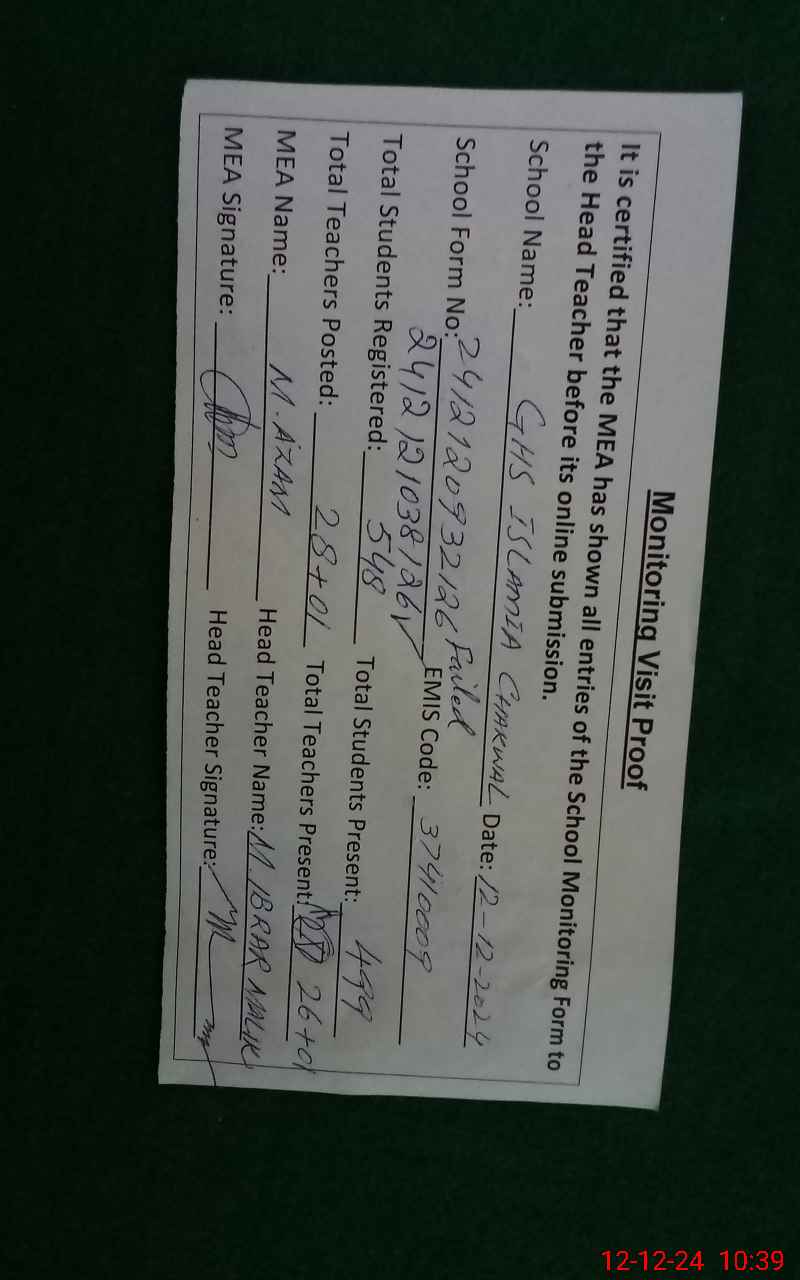 Monitoring Visit Proof
It is certified that the MEA has shown all entries of the School Monitoring Form to
the Head Teacher before its online submission.
School Name: GHS ISLAMIA CHAKWAL Date: 12-12-2024
School Form No: 2412120932126 Failed
2412121038126 ✓ EMIS Code: 37410009
Total Students Registered: 548 Total Students Present: 499
Total Teachers Posted: 28+01 Total Teachers Present: 26+01
MEA Name: M. AZAM Head Teacher Name: M. IBRAR MALIK
MEA Signature: Head Teacher Signature:
12-12-24 10:39